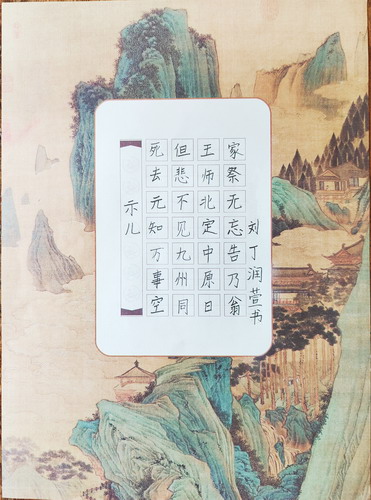 示儿
死去元知万事空
但悲不见九州同
王师北定中原日
家祭无忘告乃翁
刘丁润萱书